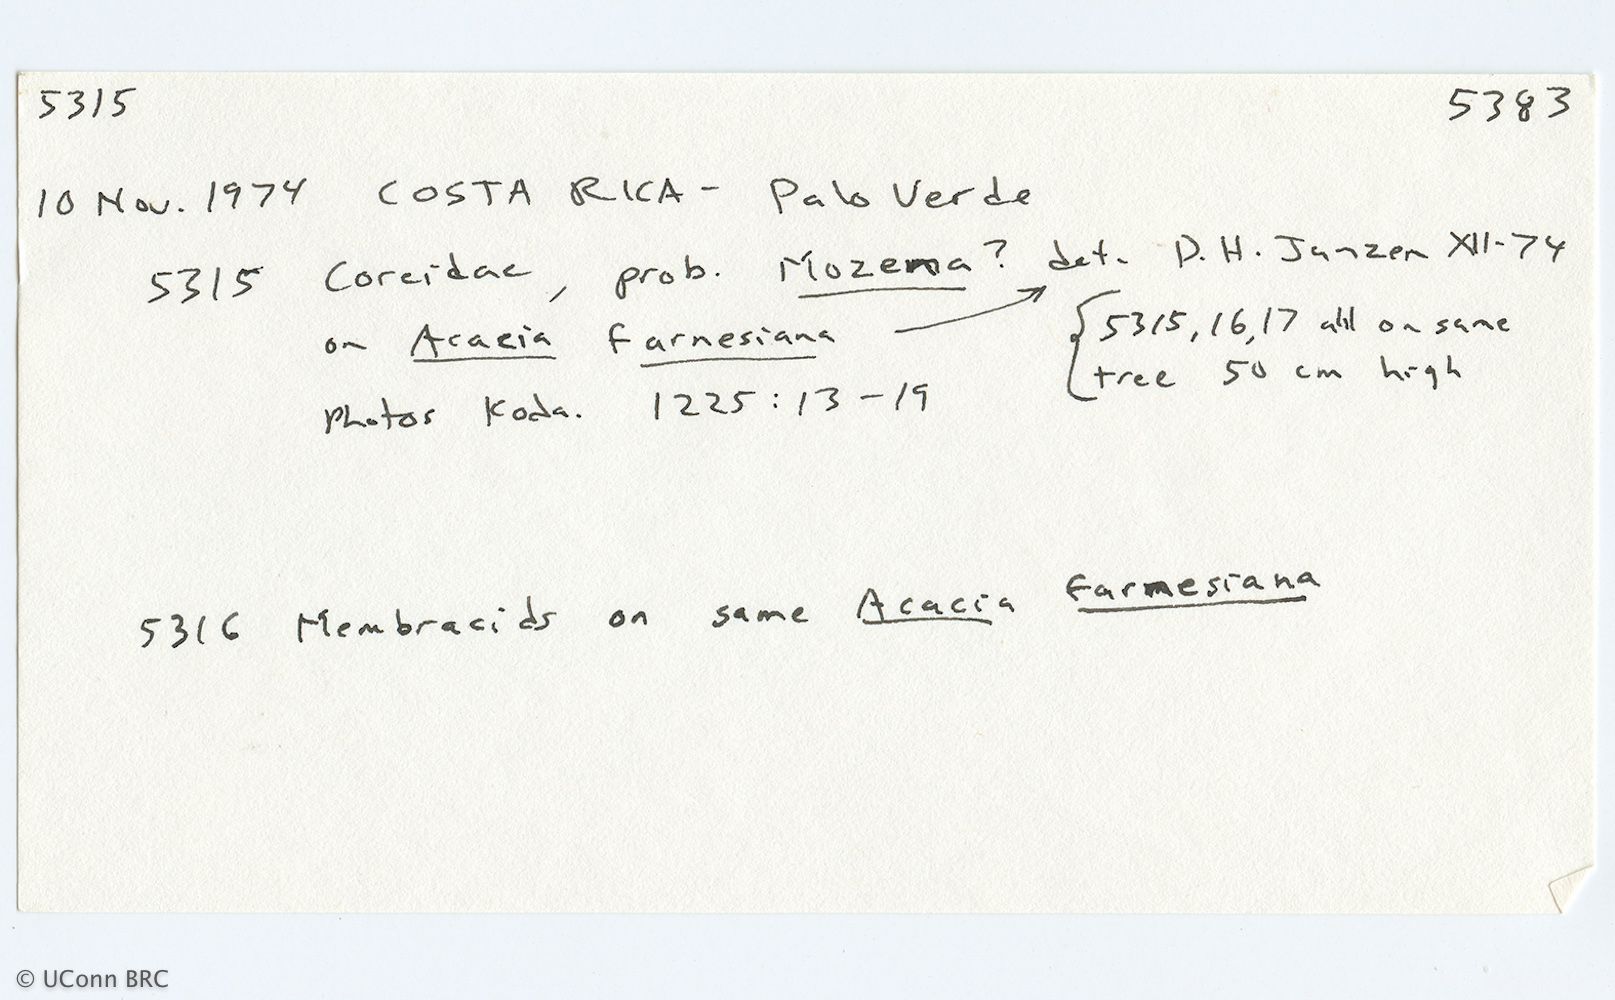 5315 5383
10 Nov. 1974 COSTA RICA - Palo Verde
5315 Coreidae, prob. Mozena? det. D. H. Janzen XII-74
on Acacia farnesiana → {5315, 16, 17 all on same
tree 50 cm high
Photos Koda. 1225:13-19
5316 Membracids on same Acacia farnesiana
© UConn BRC